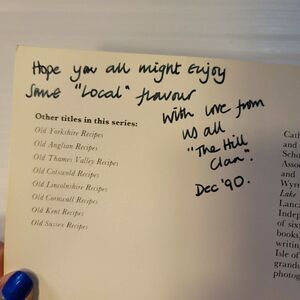 Hope you all might Enjoy
Some "Local" flavour
With love from
us all
"The Hill
Clan".
Dec '90.
Other titles in this series:
Old Yorkshire Recipes
Old Anglian Recipes
Old Thames Valley Recipes
Old Cotswold Recipes
Old Lincolnshire Recipes
Old Cornwall Recipes
Old Kent Recipes
Old Sussex Recipes
Cath
and
Scho
Assoc
and
Wyre
Lake
Lanca
Indep
of six
books,
writin
Isle of
grande
photog